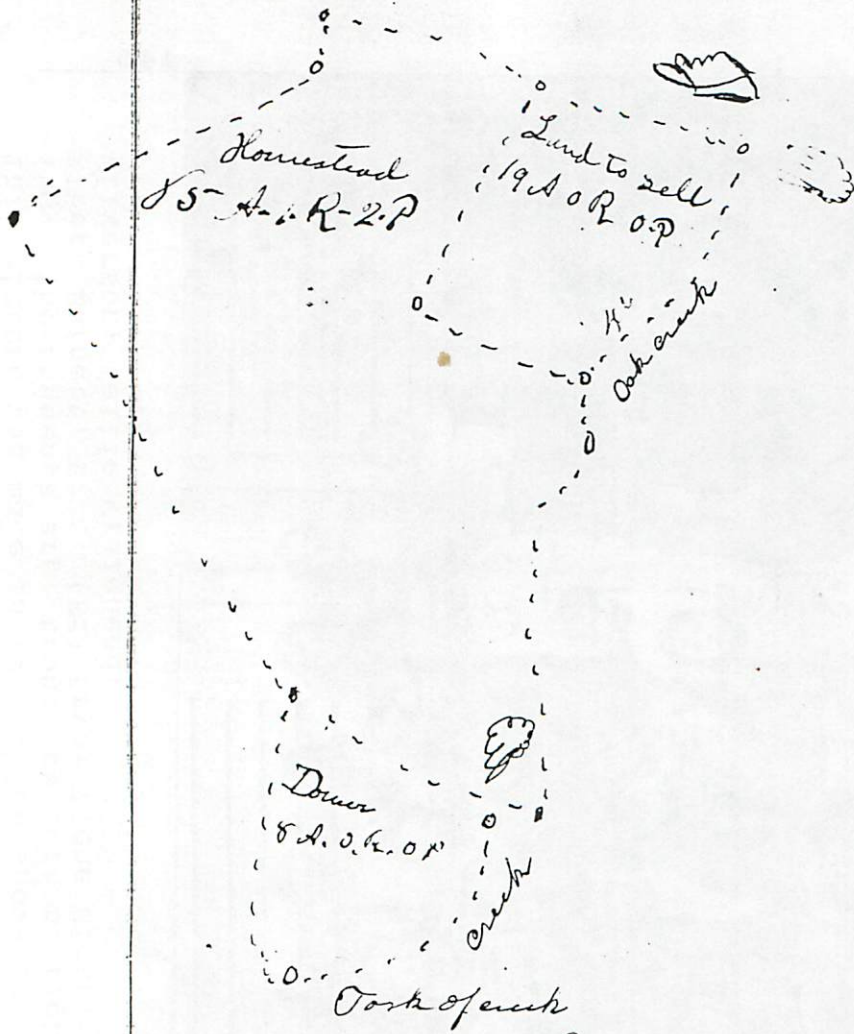 Homestead
85 A-1-R-2-P
Land to sell
19 A 0 R 0.P
Oak Creek
Dower
8 A. 0. R. 0 P
Creek
Fork of creek